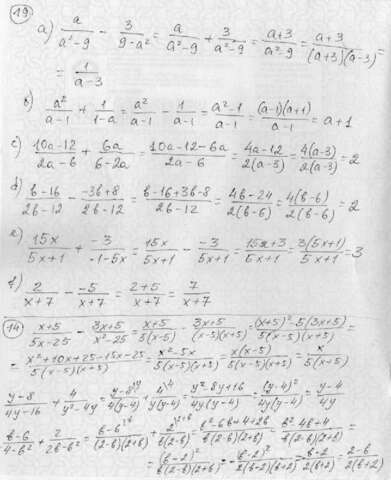 19
a) a/(a²-9) - 3/(9-a²) = a/(a²-9) + 3/(a²-9) = (a+3)/(a²-9) = (a+3)/((a+3)(a-3)) =
= 1/(a-3)
b) a²/(a-1) + 1/(1-a) = a²/(a-1) - 1/(a-1) = (a²-1)/(a-1) = ((a-1)(a+1))/(a-1) = a+1
c) (10a-12)/(2a-6) + 6a/(6-2a) = (10a-12-6a)/(2a-6) = (4a-12)/(2(a-3)) = 4(a-3)/(2(a-3)) = 2
d) (b-16)/(2b-12) - (-3b+8)/(2b-12) = (b-16+3b-8)/(2b-12) = (4b-24)/(2(b-6)) = 4(b-6)/(2(b-6)) = 2
e) 15x/(5x+1) + -3/(-1-5x) = 15x/(5x+1) - -3/(5x+1) = (15x+3)/(5x+1) = 3(5x+1)/(5x+1) = 3
f) 2/(x+7) - -5/(x+7) = (2+5)/(x+7) = 7/(x+7)
14 (x+5)/(5x-25) - (3x+5)/(x²-25) = (x+5)/(5(x-5)) - (3x+5)/((x-5)(x+5)) = ((x+5)²-5(3x+5))/(5(x-5)(x+5)) =
= (x²+10x+25-15x-25)/(5(x-5)(x+5)) = (x²-5x)/(5(x-5)(x+5)) = x(x-5)/(5(x-5)(x+5)) = x/(5(x+5))
(y-8)/(4y-16) + 4/(y²-4y) = (y-8)/(4(y-4)) + 4/(y(y-4)) = (y²-8y+16)/(4y(y-4)) = (y-4)²/(4y(y-4)) = (y-4)/(4y)
(b-6)/(4-b²) + 2/(2b-b²) = (b-6)/((2-b)(2+b)) + 2/(b(2-b)) = (b²-6b+4+2b)/(b(2-b)(2+b)) = (b²-4b+4)/(b(2-b)(2+b)) =
= (b-2)²/(b(2-b)(2+b)) = -(b-2)²/(b(b-2)(b+2)) = -(b-2)/(b(2+b)) = (2-b)/(b(b+2))